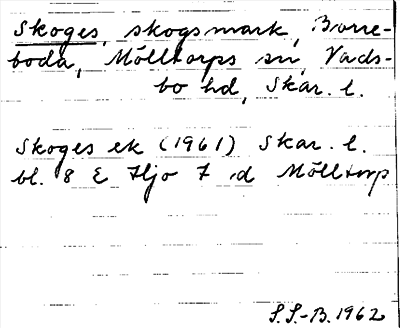 Skoges, skogsmark, Borre-
boda, Mölltorps sn, Vads-
bo hd, Skar. l.
Skoges ek (1961) Skar. l.
bl. 8 E Hjo 7 d Mölltorp
S.S.-B. 1962